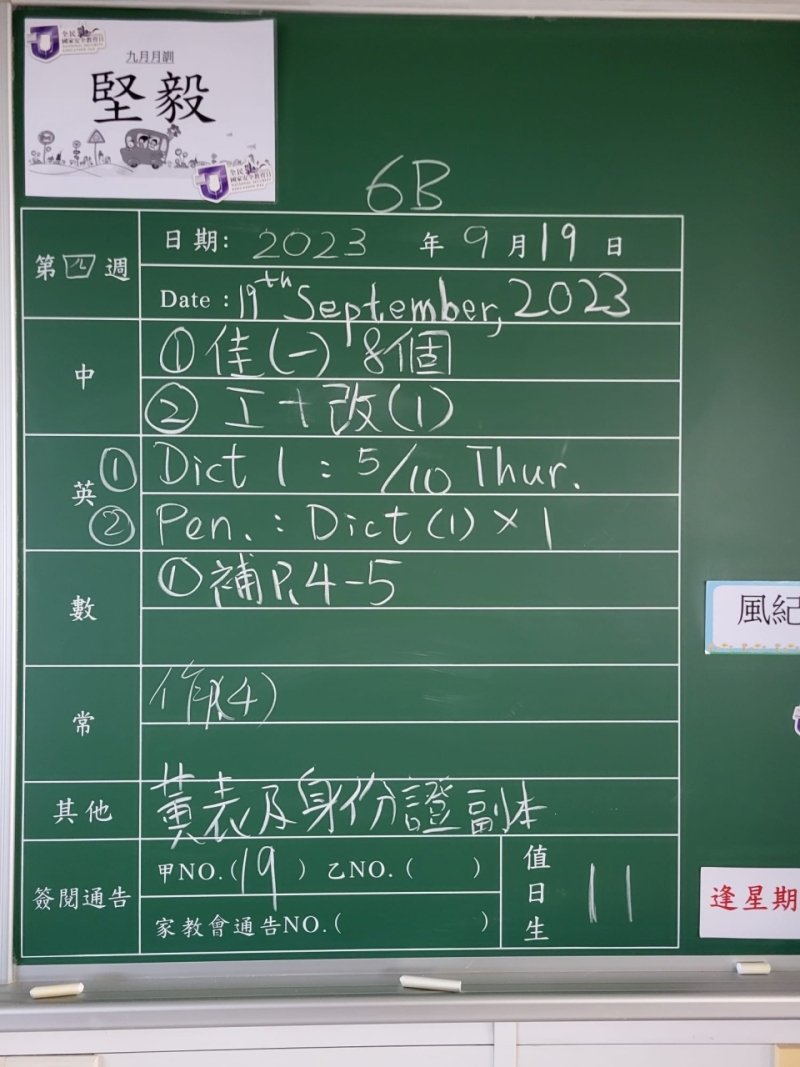 全民
國家安全教育日
NATIONAL SECURITY
EDUCATION DAY
九月月訓
堅毅
全民
國家安全教育日
NATIONAL SECURITY
EDUCATION DAY
6B
第四週
日期: 2023 年 9 月 19 日
Date : 19th September, 2023
中
① 佳(一) 8個
② 工十改(1)
英
① Dict 1 : 5/10 Thur.
② Pen. : Dict (1) × 1
數
① 補P.4-5
常
作(4)
其他
黃表及身份證副本
簽閱通告
甲NO.(19) 乙NO.( )
家教會通告NO.( )
值日生
11
風紀
逢星期